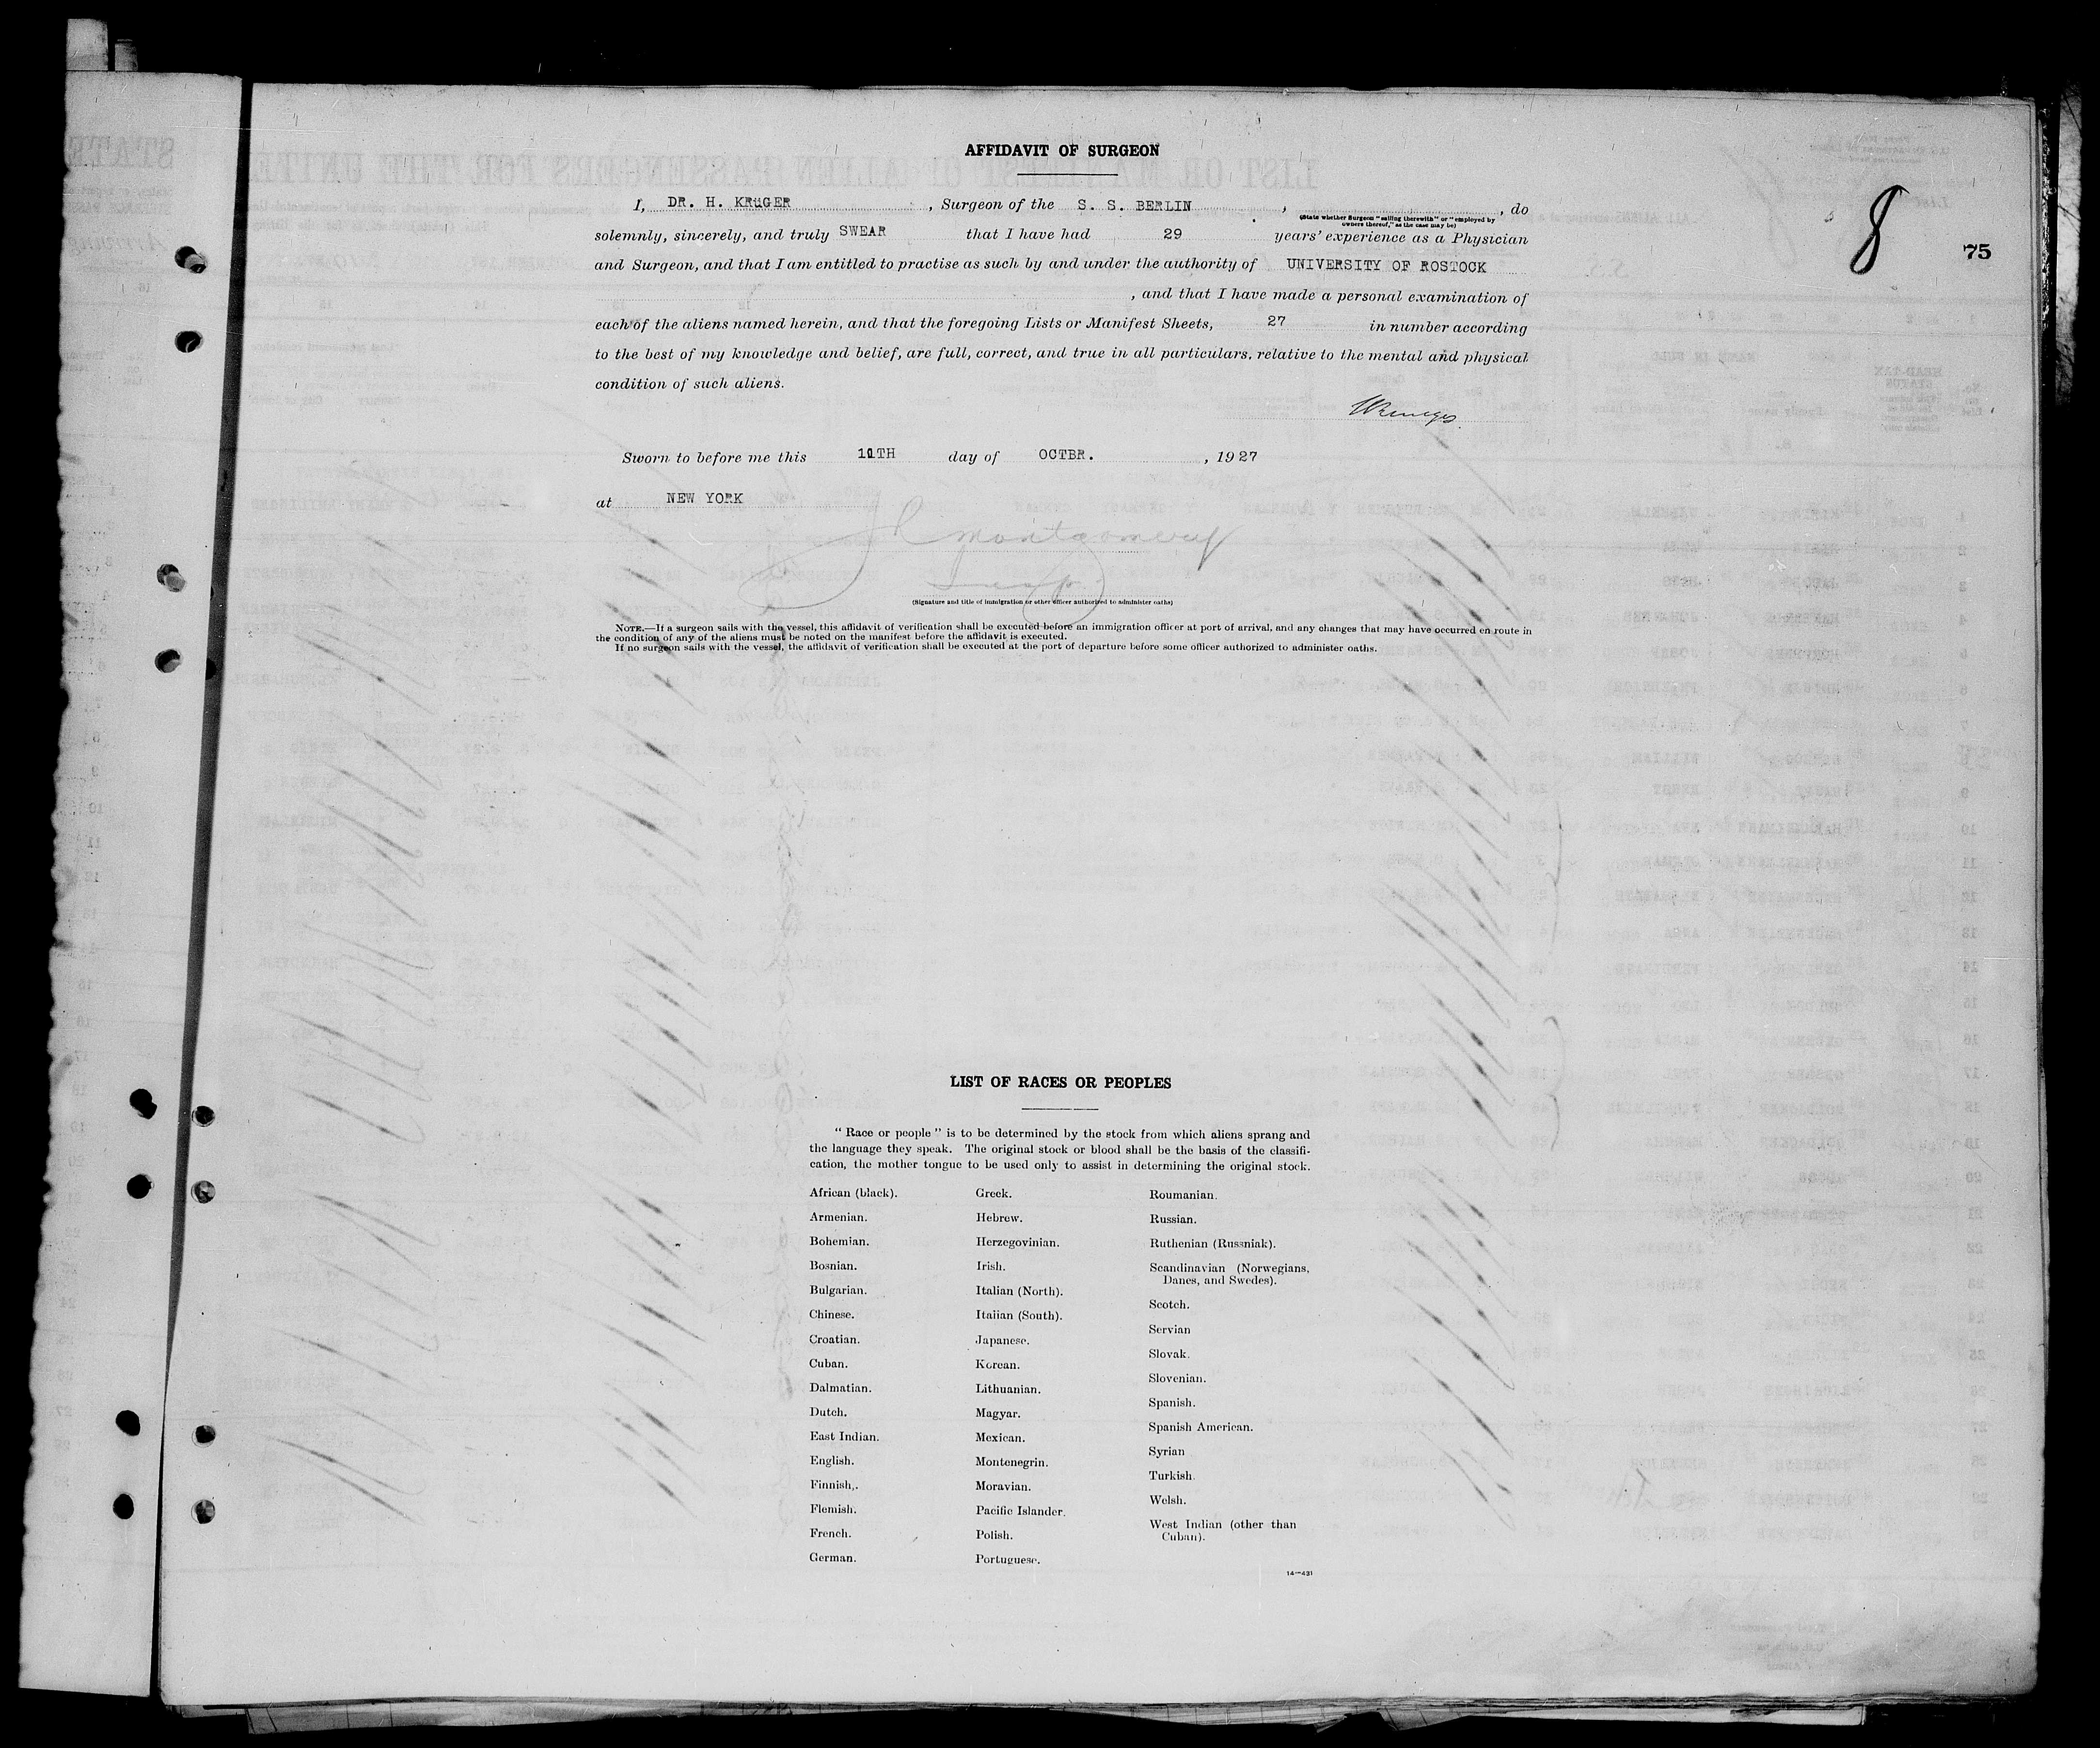 AFFIDAVIT OF SURGEON
8
75
I, DR. H. KRUGER , Surgeon of the S. S. BERLIN , , do
(State whether Surgeon "sailing therewith" or "employed by
owners thereof," as the case may be)
solemnly, sincerely, and truly SWEAR that I have had 29 years' experience as a Physician
and Surgeon, and that I am entitled to practise as such by and under the authority of UNIVERSITY OF ROSTOCK
, and that I have made a personal examination of
each of the aliens named herein, and that the foregoing Lists or Manifest Sheets, 27 in number according
to the best of my knowledge and belief, are full, correct, and true in all particulars, relative to the mental and physical
condition of such aliens.
Sworn to before me this 11TH day of OCTBR. , 1927
at NEW YORK
Montgomery
Insp.
(Signature and title of immigration or other officer authorized to administer oaths)
NOTE.—If a surgeon sails with the vessel, this affidavit of verification shall be executed before an immigration officer at port of arrival, and any changes that may have occurred en route in
the condition of any of the aliens must be noted on the manifest before the affidavit is executed.
If no surgeon sails with the vessel, the affidavit of verification shall be executed at the port of departure before some officer authorized to administer oaths.
LIST OF RACES OR PEOPLES
" Race or people " is to be determined by the stock from which aliens sprang and
the language they speak. The original stock or blood shall be the basis of the classifi-
cation, the mother tongue to be used only to assist in determining the original stock.
African (black).
Armenian.
Bohemian.
Bosnian.
Bulgarian.
Chinese.
Croatian.
Cuban.
Dalmatian.
Dutch.
East Indian.
English.
Finnish.
Flemish.
French.
German.
Greek.
Hebrew.
Herzegovinian.
Irish.
Italian (North).
Italian (South).
Japanese.
Korean.
Lithuanian.
Magyar.
Mexican.
Montenegrin.
Moravian.
Pacific Islander.
Polish.
Portuguese.
Roumanian.
Russian.
Ruthenian (Russniak).
Scandinavian (Norwegians,
Danes, and Swedes).
Scotch.
Servian
Slovak.
Slovenian.
Spanish.
Spanish American.
Syrian
Turkish.
Welsh.
West Indian (other than
Cuban).
14—431